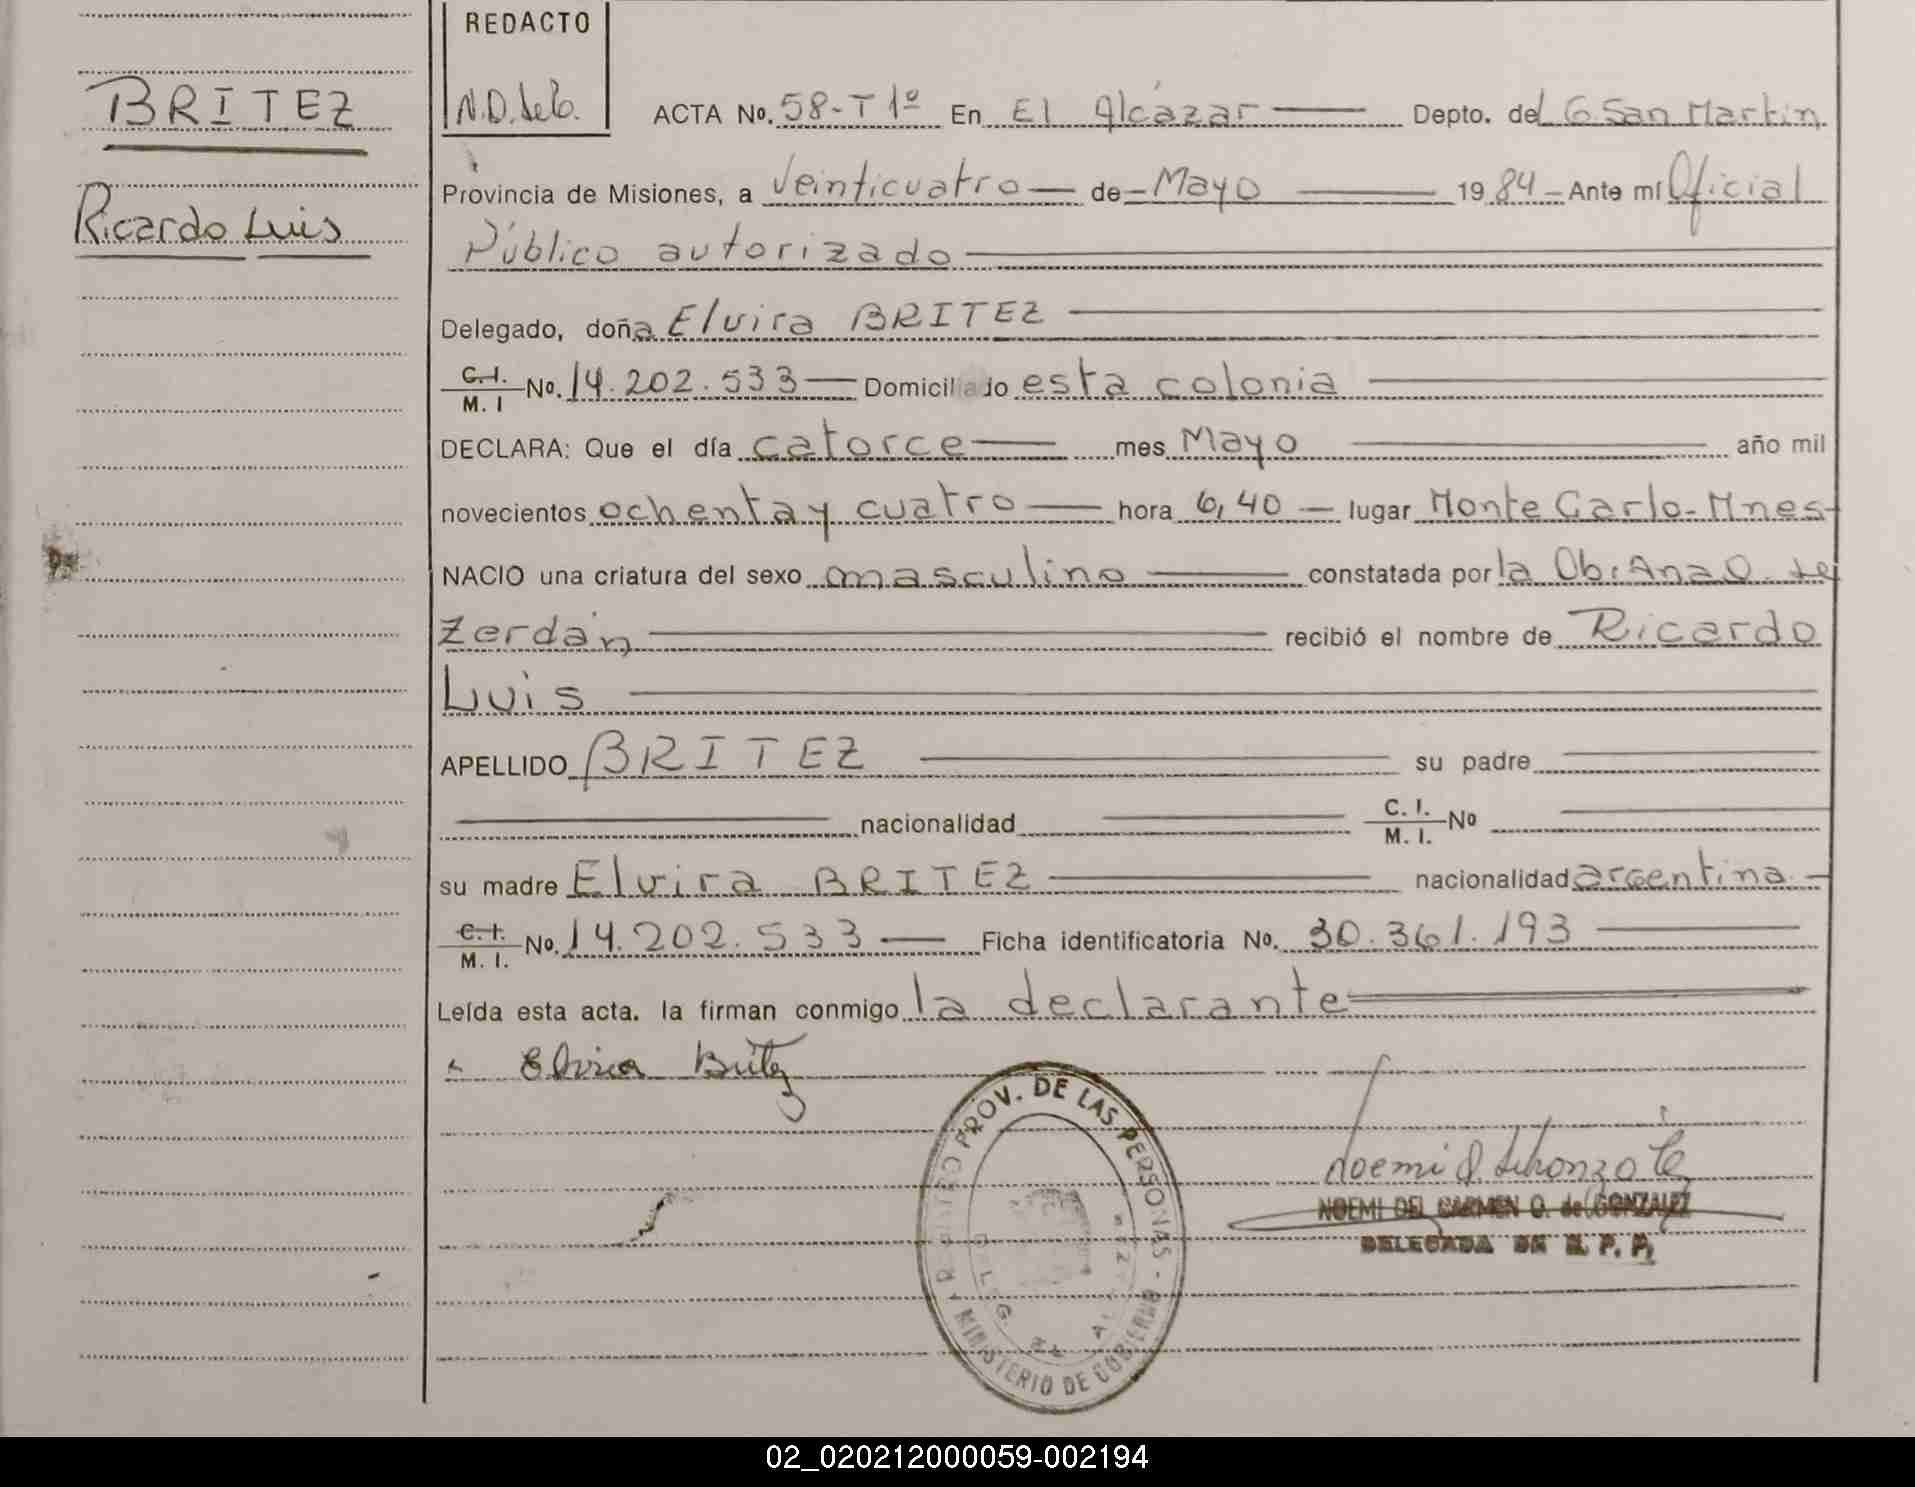 REDACTO
BRITEZ
Ricardo Luis
ACTA No. 58-T 1º En El Alcázar Depto. del G. San Martin
Provincia de Misiones, a Veinticuatro de Mayo 19 84 Ante mí Oficial
Público autorizado
Delegado, doña Elvira BRITEZ
C.I. M. I No. 14.202.533 Domiciliado esta colonia
DECLARA: Que el día catorce mes Mayo año mil
novecientos ochenta y cuatro hora 6,40 lugar Monte Carlo-Mnes
NACIO una criatura del sexo masculino constatada por la Ob. Ana O. de
Zerdán recibió el nombre de Ricardo
Luis
APELLIDO BRITEZ su padre
nacionalidad C. I. M. I. No
su madre Elvira BRITEZ nacionalidad argentina
C.I. M. I. No. 14.202.533 Ficha identificatoria No. 30.361.193
Leída esta acta. la firman conmigo la declarante
Elvira Britez
PROV. DE LAS PERSONAS
MINISTERIO DE GOBIERNO
NOEMI DEL CARMEN O. de GONZALEZ
DELEGADA DE R. P. P.
02_020212000059-002194